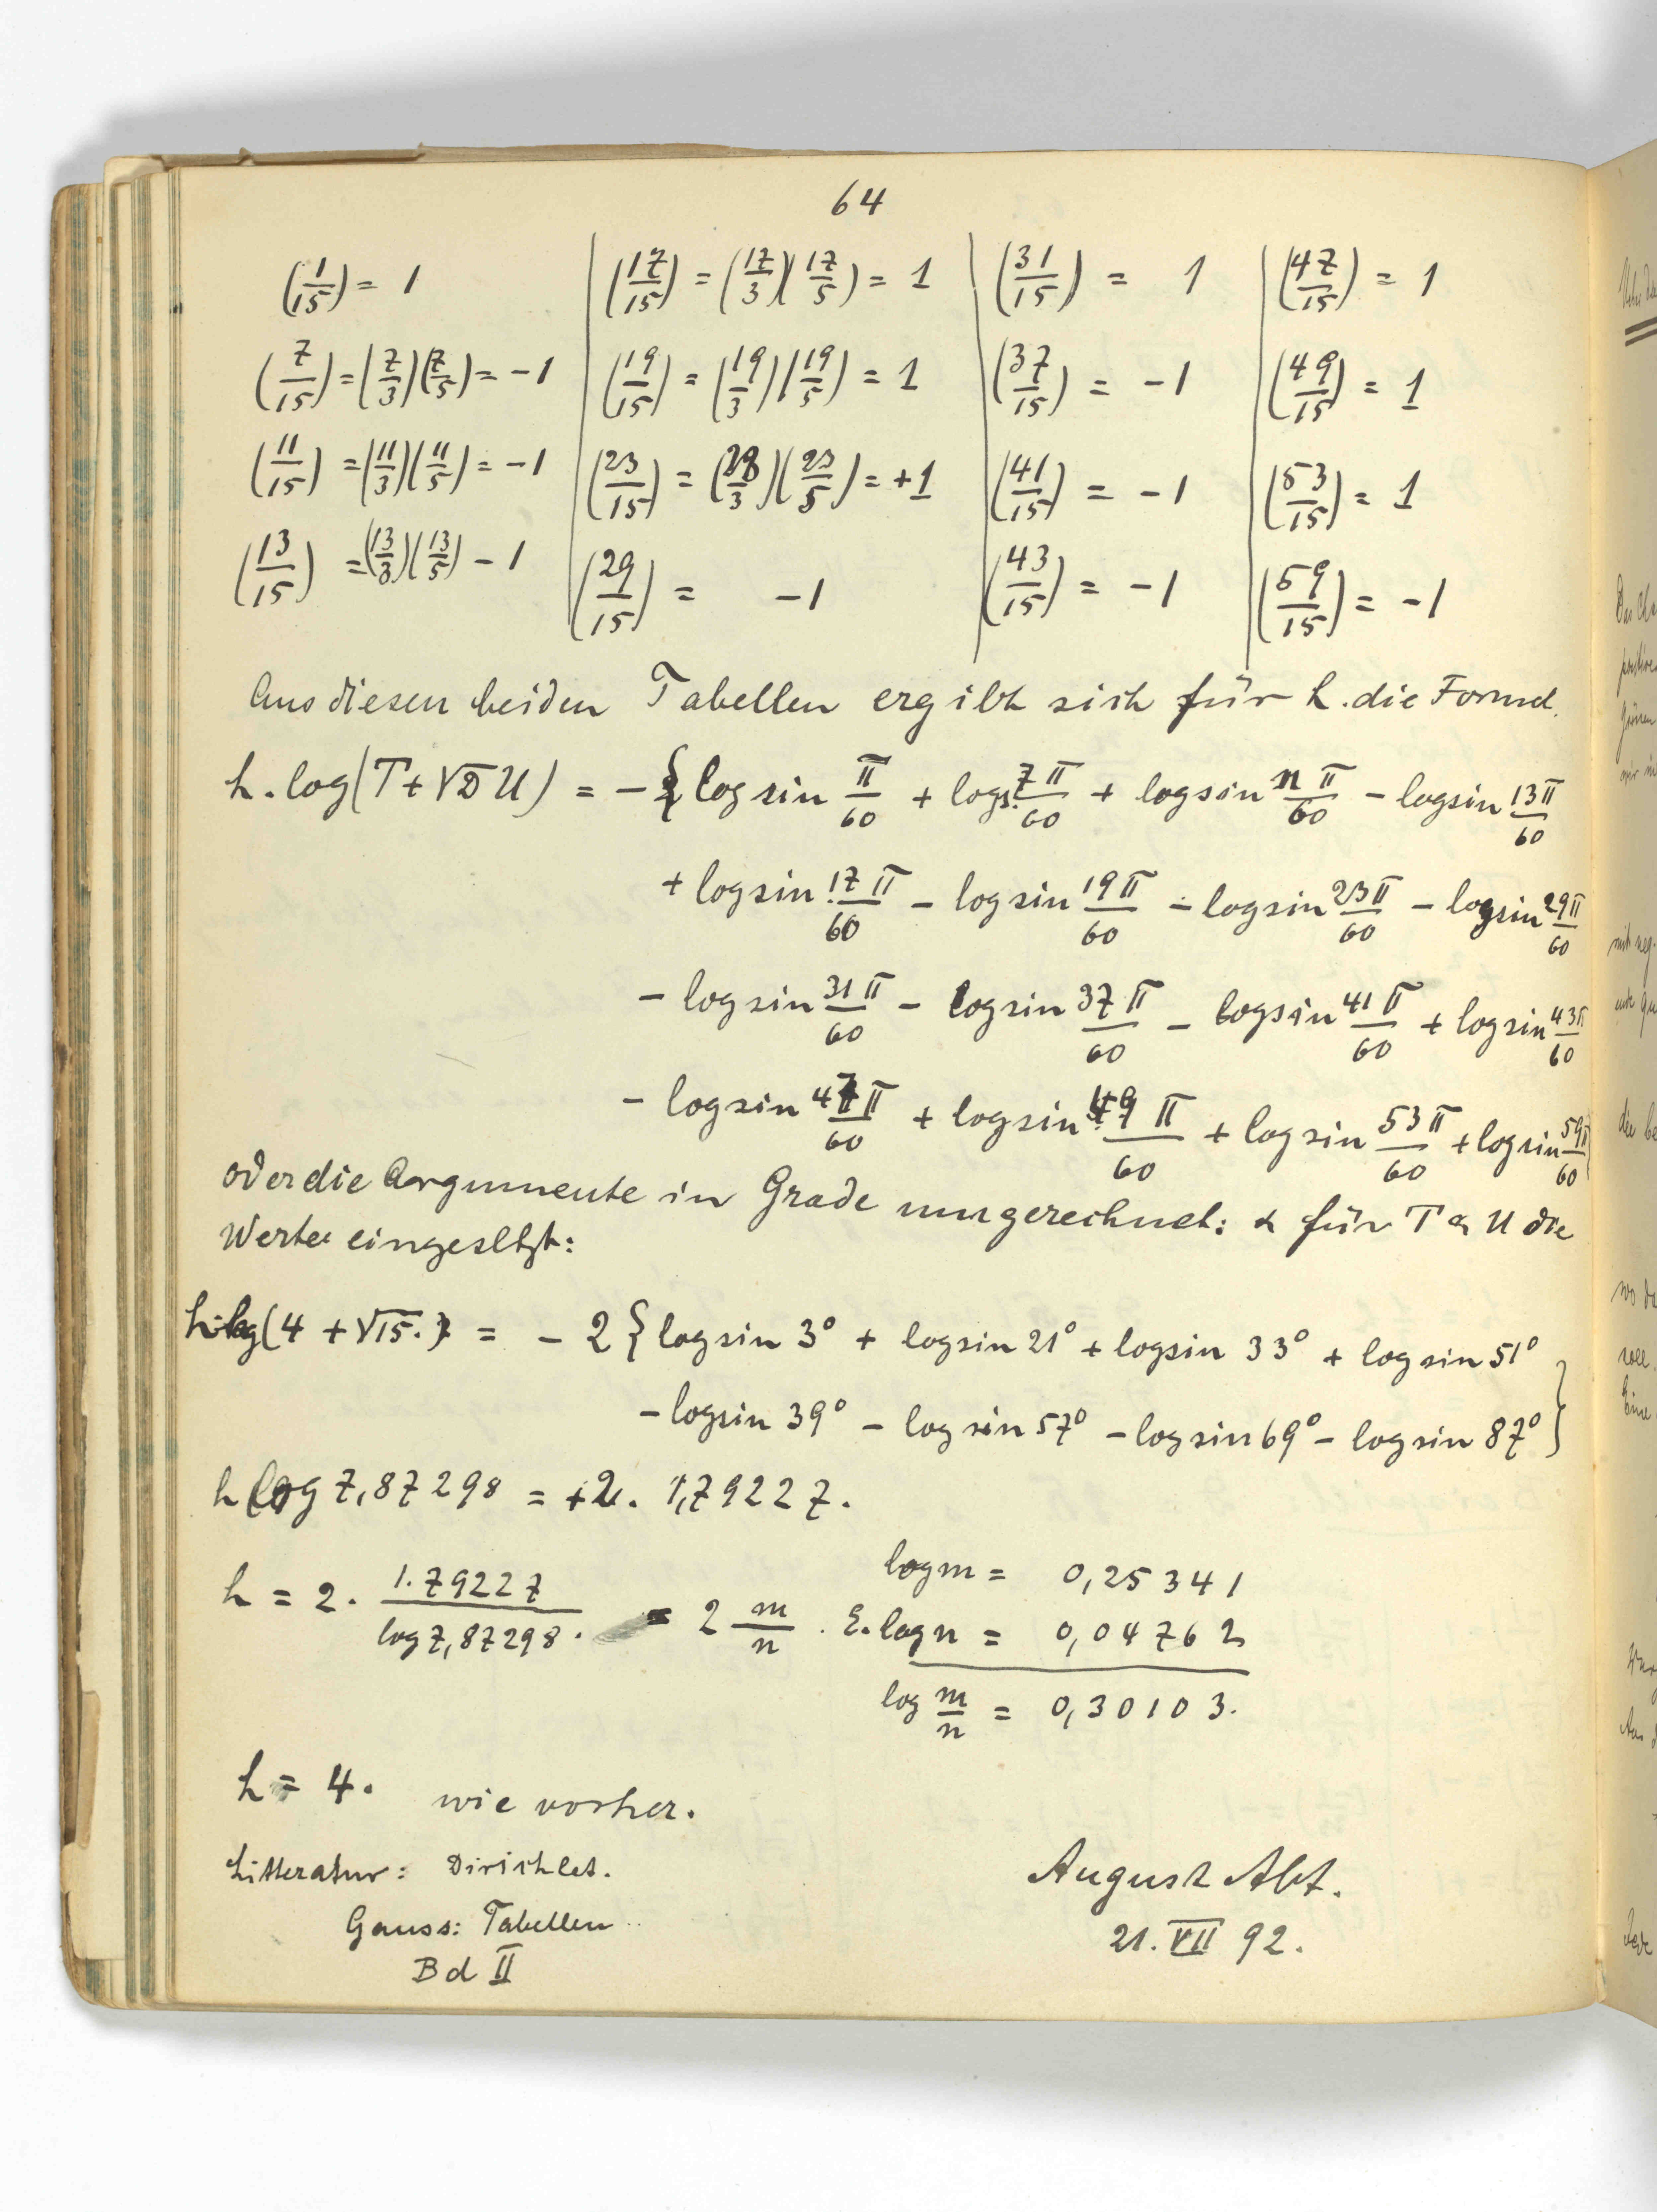 64
(1/15) = 1 | (17/15) = (17/3)(17/5) = 1 | (31/15) = 1 | (47/15) = 1
(7/15) = (7/3)(7/5) = -1 | (19/15) = (19/3)(19/5) = 1 | (37/15) = -1 | (49/15) = 1
(11/15) = (11/3)(11/5) = -1 | (23/15) = (23/3)(23/5) = +1 | (41/15) = -1 | (53/15) = 1
(13/15) = (13/3)(13/5) - 1 | (29/15) = -1 | (43/15) = -1 | (59/15) = -1
Aus diesen beiden Tabellen ergibt sich für h. die Formel.
h . log(T + √D U) = - { log sin π/60 + log s. 7π/60 + log sin 11π/60 - log sin 13π/60
+ log sin 17π/60 - log sin 19π/60 - log sin 23π/60 - log sin 29π/60
- log sin 31π/60 - log sin 37π/60 - log sin 41π/60 + log sin 43π/60
- log sin 47π/60 + log sin 49π/60 + log sin 53π/60 + log sin 59π/60
oder die Argumente in Grade umgerechnet: & für T & U die
Werte eingesetzt:
h log(4 + √15.) = - 2 { log sin 3° + log sin 21° + log sin 33° + log sin 51°
- log sin 39° - log sin 57° - log sin 69° - log sin 87° }
h log 7,87298 = +2. 1,79227.
h = 2 . 1.79227 / log 7,87298 . = 2 m/n . log m = 0,25341
E. log n = 0,04762
log m/n = 0,30103.
h = 4. wie vorher.
Litteratur: Dirichlet.
Gauss: Tabellen
Bd II
August Abt.
21. VII 92.